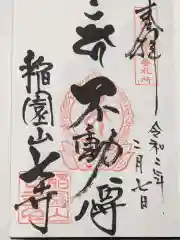 奉拝
令和二年
二月七日
不動尊
稲園山
七寺